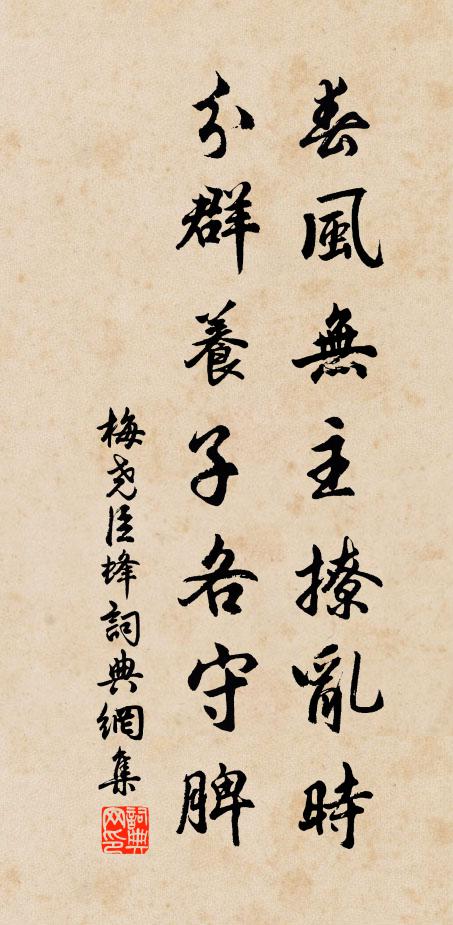 春風無主撩亂時
分群養子各守脾
梅堯臣蜂詞典網集
詞典網印